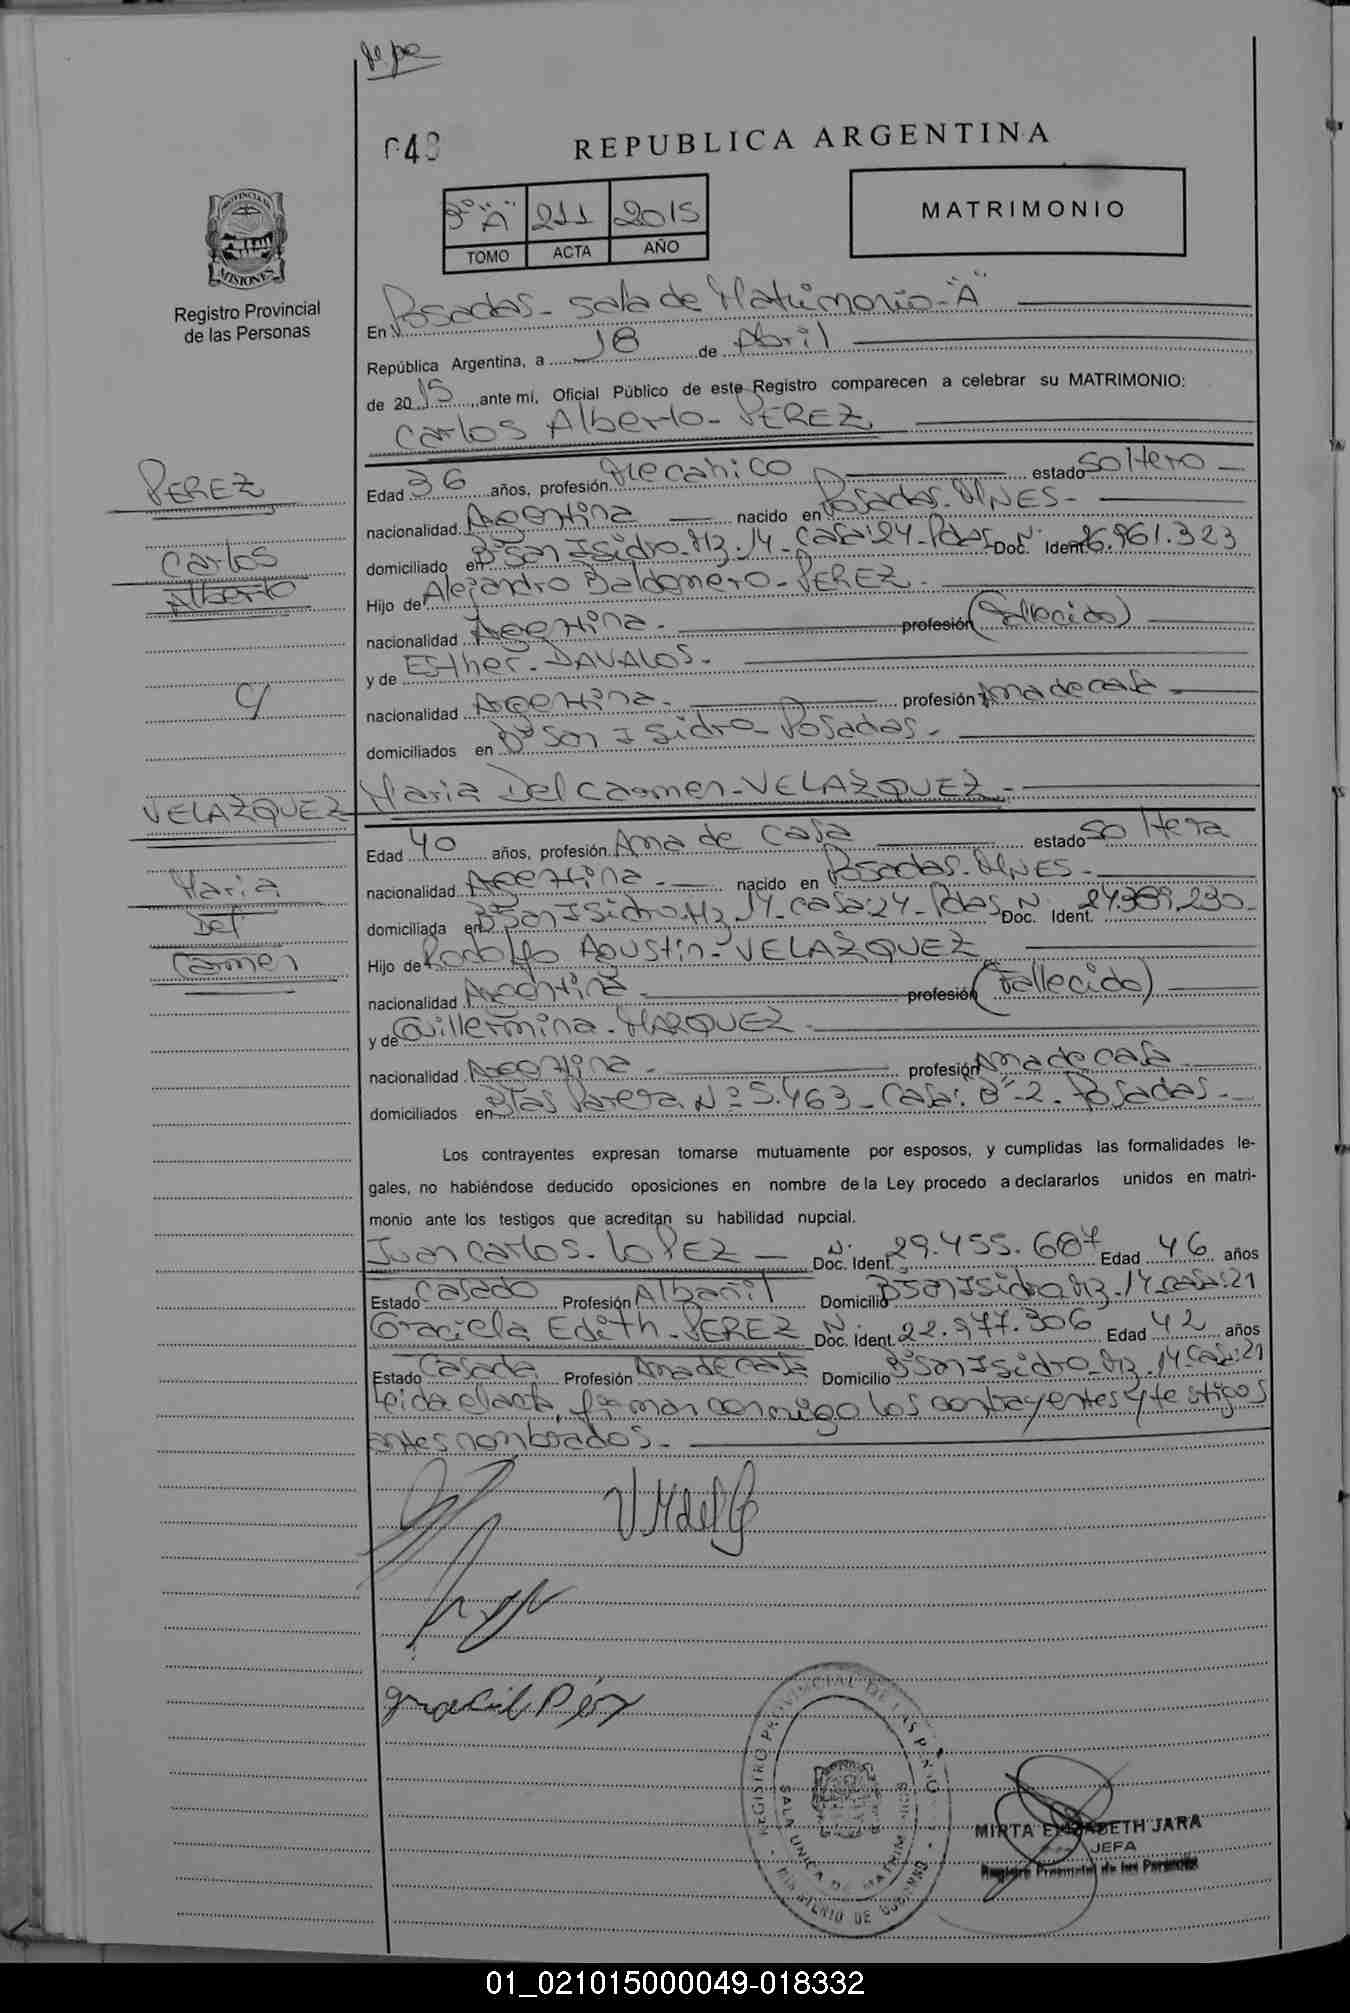 REPUBLICA ARGENTINA
3º "A" 211 2015
TOMO ACTA AÑO
MATRIMONIO
PROVINCIA DE
MISIONES
Registro Provincial
de las Personas
En Posadas - Sala de Matrimonio - "A"
República Argentina, a 18 de Abril
de 2015, ante mi, Oficial Público de este Registro comparecen a celebrar su MATRIMONIO:
Carlos Alberto - PEREZ
PEREZ
Carlos
Alberto
c/
VELAZQUEZ
Maria
Del
Carmen
Edad 36 años, profesión Mecanico estado Soltero
nacionalidad Argentina nacido en Posadas. MNES -
domiciliado en Bº San Isidro - Mz. 14 - Casa: 24 - Pdas. Doc. Ident. Nº 26.961.323
Hijo de Alejandro Baldomero - PEREZ -
nacionalidad Argentina. profesión (Fallecido)
y de Esther - DAVALOS.
nacionalidad Argentina. profesión Ama de casa
domiciliados en Bº San Isidro - Posadas.
Maria Del Carmen - VELAZQUEZ -
Edad 40 años, profesión Ama de casa estado Soltera
nacionalidad Argentina. nacido en Posadas. MNES -
domiciliada en Bº San Isidro. Mz 14 - casa: 24 - Pdas Doc. Nº Ident. 24.389.230 -
Hijo de Rodolfo Agustin - VELAZQUEZ
nacionalidad Argentina profesión (Fallecido)
y de Guillermina - MARQUEZ
nacionalidad Argentina. profesión Ama de casa
domiciliados en Blas Parera Nº 5.463 - Casa: "B" - 2 - Posadas -
Los contrayentes expresan tomarse mutuamente por esposos, y cumplidas las formalidades le-
gales, no habiéndose deducido oposiciones en nombre de la Ley procedo a declararlos unidos en matri-
monio ante los testigos que acreditan su habilidad nupcial.
Juan Carlos - LOPEZ - Doc. Ident. Nº 29.455.607 Edad 46 años
Estado Casado Profesión Albañil Domicilio Bº San Isidro Mz. 14 casa: 21
Graciela Edith - PEREZ Doc. Ident. Nº 22.977.306 Edad 42 años
Estado Casada Profesión Ama de casa Domicilio Bº San Isidro - Mz. 14 Casa: 21
Leida el acta, firman conmigo los contrayentes y testigos
antes nombrados. -
REGISTRO PROVINCIAL DE LAS
SALA UNICA DE MATRIM
MINISTERIO DE GOBIERNO
MIRTA ELIZABETH JARA
JEFA
Registro Provincial de las Personas
01_021015000049-018332